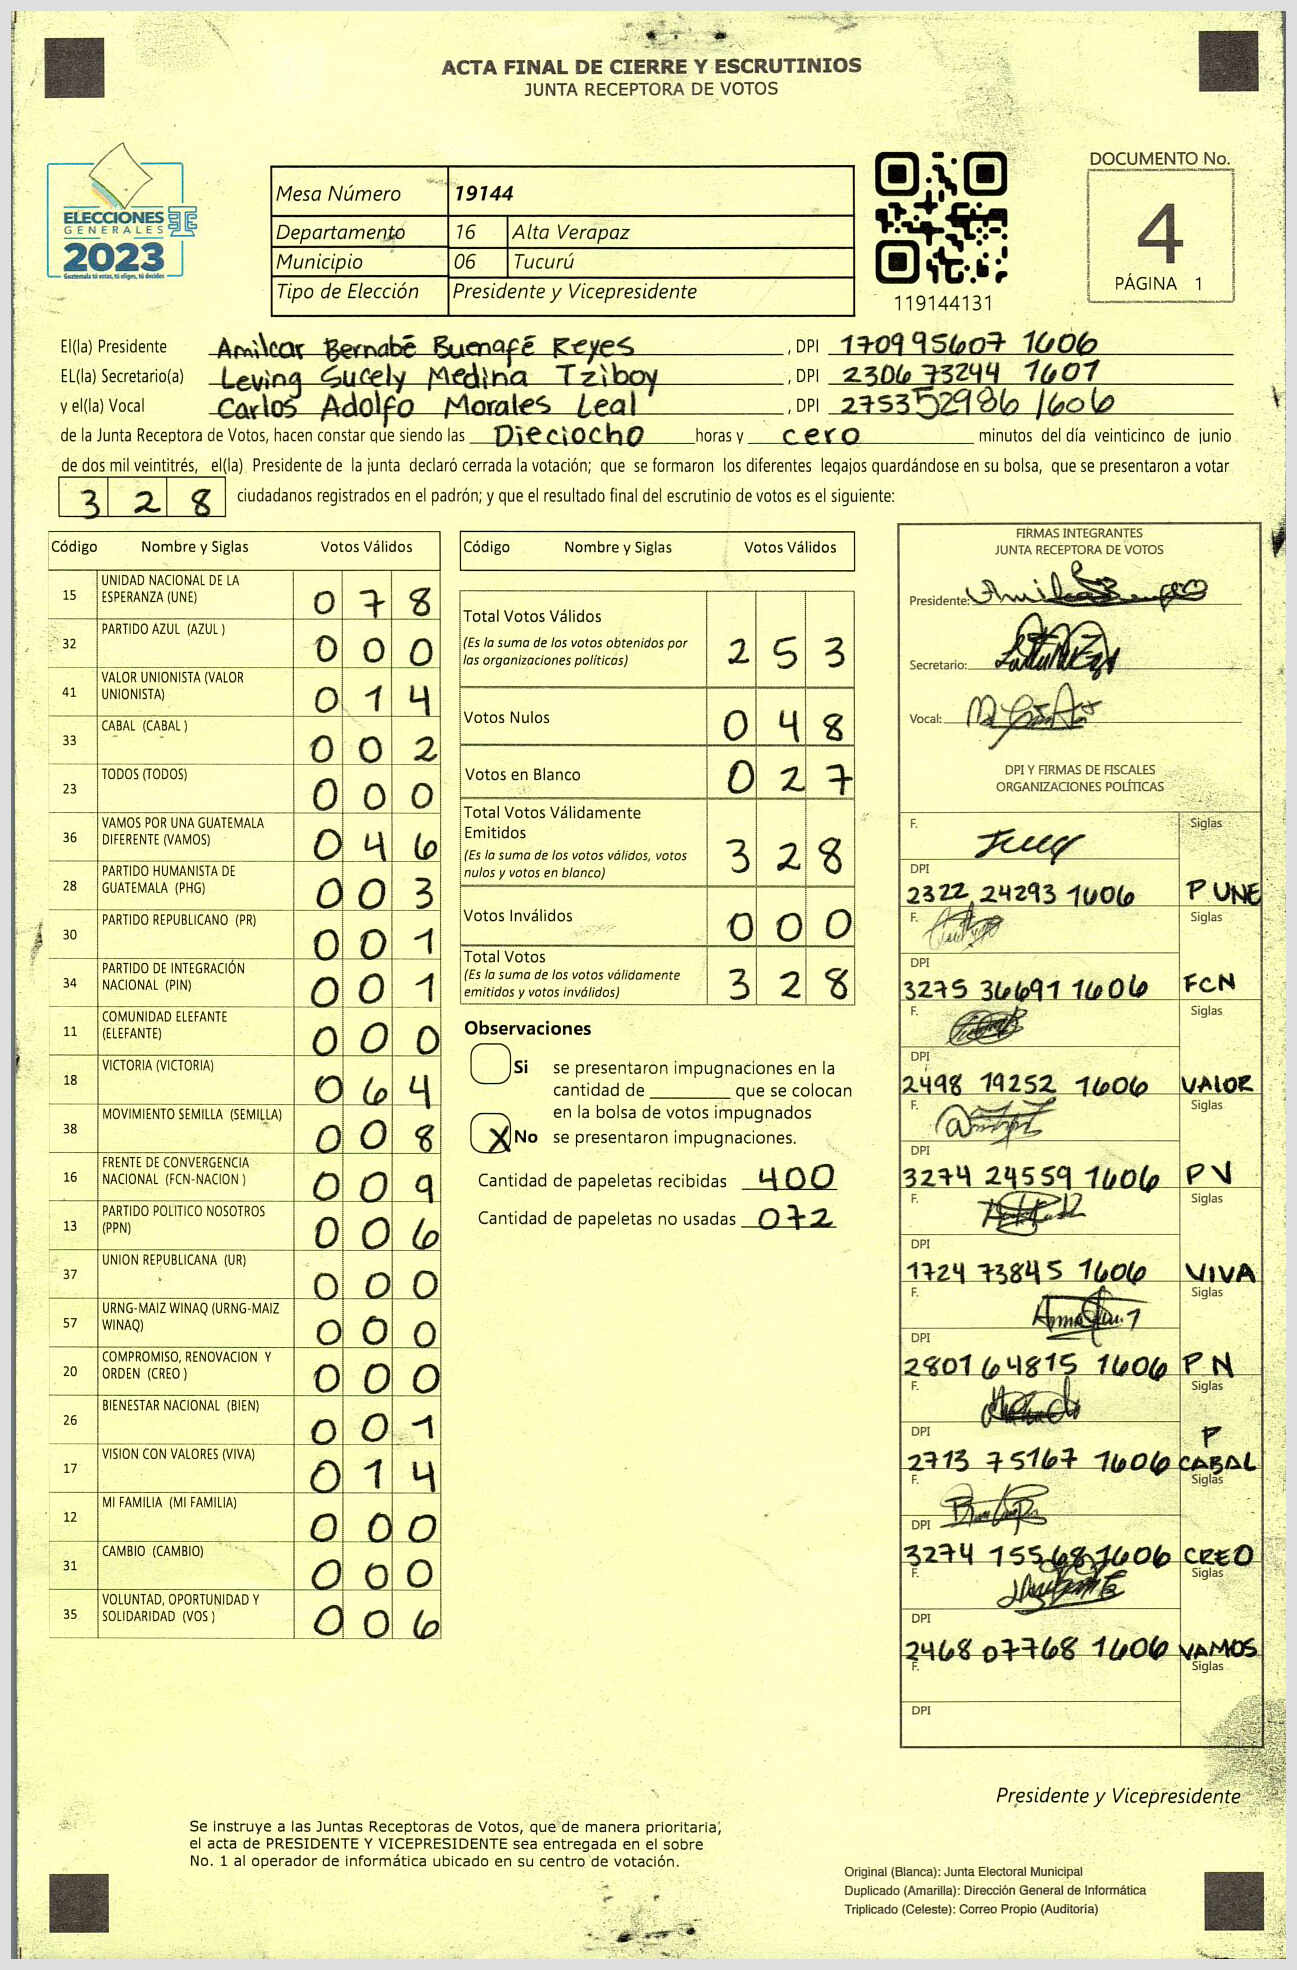 ACTA FINAL DE CIERRE Y ESCRUTINIOS
JUNTA RECEPTORA DE VOTOS
ELECCIONES
GENERALES
2023
Guatemala tú votas, tú eliges, tú decides
Mesa Número 19144
Departamento 16 Alta Verapaz
Municipio 06 Tucurú
Tipo de Elección Presidente y Vicepresidente
119144131
DOCUMENTO No.
4
PÁGINA 1
El(la) Presidente Amilcar Bernabé Buenafé Reyes , DPI 170995607 1606
EL(la) Secretario(a) Leving Sucely Medina Tziboy , DPI 2306 73244 1607
y el(la) Vocal Carlos Adolfo Morales Leal , DPI 275352986 1606
de la Junta Receptora de Votos, hacen constar que siendo las Dieciocho horas y cero minutos del día veinticinco de junio
de dos mil veintitrés, el(la) Presidente de la junta declaró cerrada la votación; que se formaron los diferentes legajos guardándose en su bolsa, que se presentaron a votar
3 2 8 ciudadanos registrados en el padrón; y que el resultado final del escrutinio de votos es el siguiente:
Código Nombre y Siglas Votos Válidos
15 UNIDAD NACIONAL DE LA ESPERANZA (UNE) 0 7 8
32 PARTIDO AZUL (AZUL ) 0 0 0
41 VALOR UNIONISTA (VALOR UNIONISTA) 0 1 4
33 CABAL (CABAL ) 0 0 2
23 TODOS (TODOS) 0 0 0
36 VAMOS POR UNA GUATEMALA DIFERENTE (VAMOS) 0 4 6
28 PARTIDO HUMANISTA DE GUATEMALA (PHG) 0 0 3
30 PARTIDO REPUBLICANO (PR) 0 0 1
34 PARTIDO DE INTEGRACIÓN NACIONAL (PIN) 0 0 1
11 COMUNIDAD ELEFANTE (ELEFANTE) 0 0 0
18 VICTORIA (VICTORIA) 0 6 4
38 MOVIMIENTO SEMILLA (SEMILLA) 0 0 8
16 FRENTE DE CONVERGENCIA NACIONAL (FCN-NACION ) 0 0 9
13 PARTIDO POLITICO NOSOTROS (PPN) 0 0 6
37 UNION REPUBLICANA (UR) 0 0 0
57 URNG-MAIZ WINAQ (URNG-MAIZ WINAQ) 0 0 0
20 COMPROMISO, RENOVACION Y ORDEN (CREO ) 0 0 0
26 BIENESTAR NACIONAL (BIEN) 0 0 1
17 VISION CON VALORES (VIVA) 0 1 4
12 MI FAMILIA (MI FAMILIA) 0 0 0
31 CAMBIO (CAMBIO) 0 0 0
35 VOLUNTAD, OPORTUNIDAD Y SOLIDARIDAD (VOS ) 0 0 6
Código Nombre y Siglas Votos Válidos
Total Votos Válidos 2 5 3
(Es la suma de los votos obtenidos por
las organizaciones políticas)
Votos Nulos 0 4 8
Votos en Blanco 0 2 7
Total Votos Válidamente
Emitidos 3 2 8
(Es la suma de los votos válidos, votos
nulos y votos en blanco)
Votos Inválidos 0 0 0
Total Votos 3 2 8
(Es la suma de los votos válidamente
emitidos y votos inválidos)
Observaciones
Si se presentaron impugnaciones en la
cantidad de ________ que se colocan
en la bolsa de votos impugnados
X No se presentaron impugnaciones.
Cantidad de papeletas recibidas 400
Cantidad de papeletas no usadas 072
FIRMAS INTEGRANTES
JUNTA RECEPTORA DE VOTOS
Presidente:
Secretario:
Vocal:
DPI Y FIRMAS DE FISCALES
ORGANIZACIONES POLÍTICAS
F. Siglas
DPI
2322 24293 1606 P UNE
F. Siglas
DPI
3275 36691 1606 FCN
F. Siglas
DPI
2498 19252 1606 VALOR
F. Siglas
DPI
3274 24559 1606 PV
F. Siglas
DPI
1724 73845 1606 VIVA
F. Siglas
DPI
2801 64815 1606 PN
F. Siglas
DPI P
2713 75167 1606 CABAL
F. Siglas
DPI
3274 15568 1606 CREO
F. Siglas
DPI
2468 07768 1606 VAMOS
F. Siglas
DPI
Presidente y Vicepresidente
Se instruye a las Juntas Receptoras de Votos, que de manera prioritaria,
el acta de PRESIDENTE Y VICEPRESIDENTE sea entregada en el sobre
No. 1 al operador de informática ubicado en su centro de votación.
Original (Blanca): Junta Electoral Municipal
Duplicado (Amarilla): Dirección General de Informática
Triplicado (Celeste): Correo Propio (Auditoría)